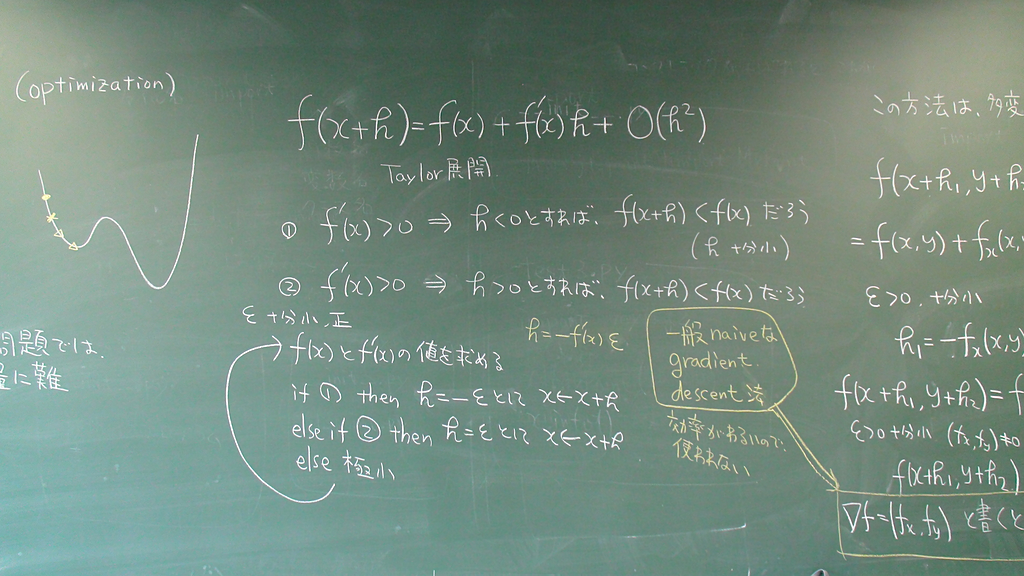 (optimization)
f(x+h)=f(x)+f'(x)h+O(h²)
Taylor展開
① f'(x)>0 ⇒ h<0とすれば、f(x+h)<f(x)だろう
(h 十分小)
② f'(x)>0 ⇒ h>0とすれば、f(x+h)<f(x)だろう
ε十分小正
f(x)とf'(x)の値を求める
if ① then h=-εとして x←x+h
else if ② then h=εとして x←x+h
else 極小
h=-f'(x)ε
一般naiveな
gradient
descent法
効率がわるいので、
使われない
問題では、
に難
この方法は、多変
f(x+h₁,y+h₂
=f(x,y)+fx(x,
ε>0、十分小
h₁=-fx(x,y)
f(x+h₁,y+h₂)=f
ε>0十分小 (fx,fy)≠0
f(x+h₁,y+h₂)
∇f=(fx,fy) と書くと